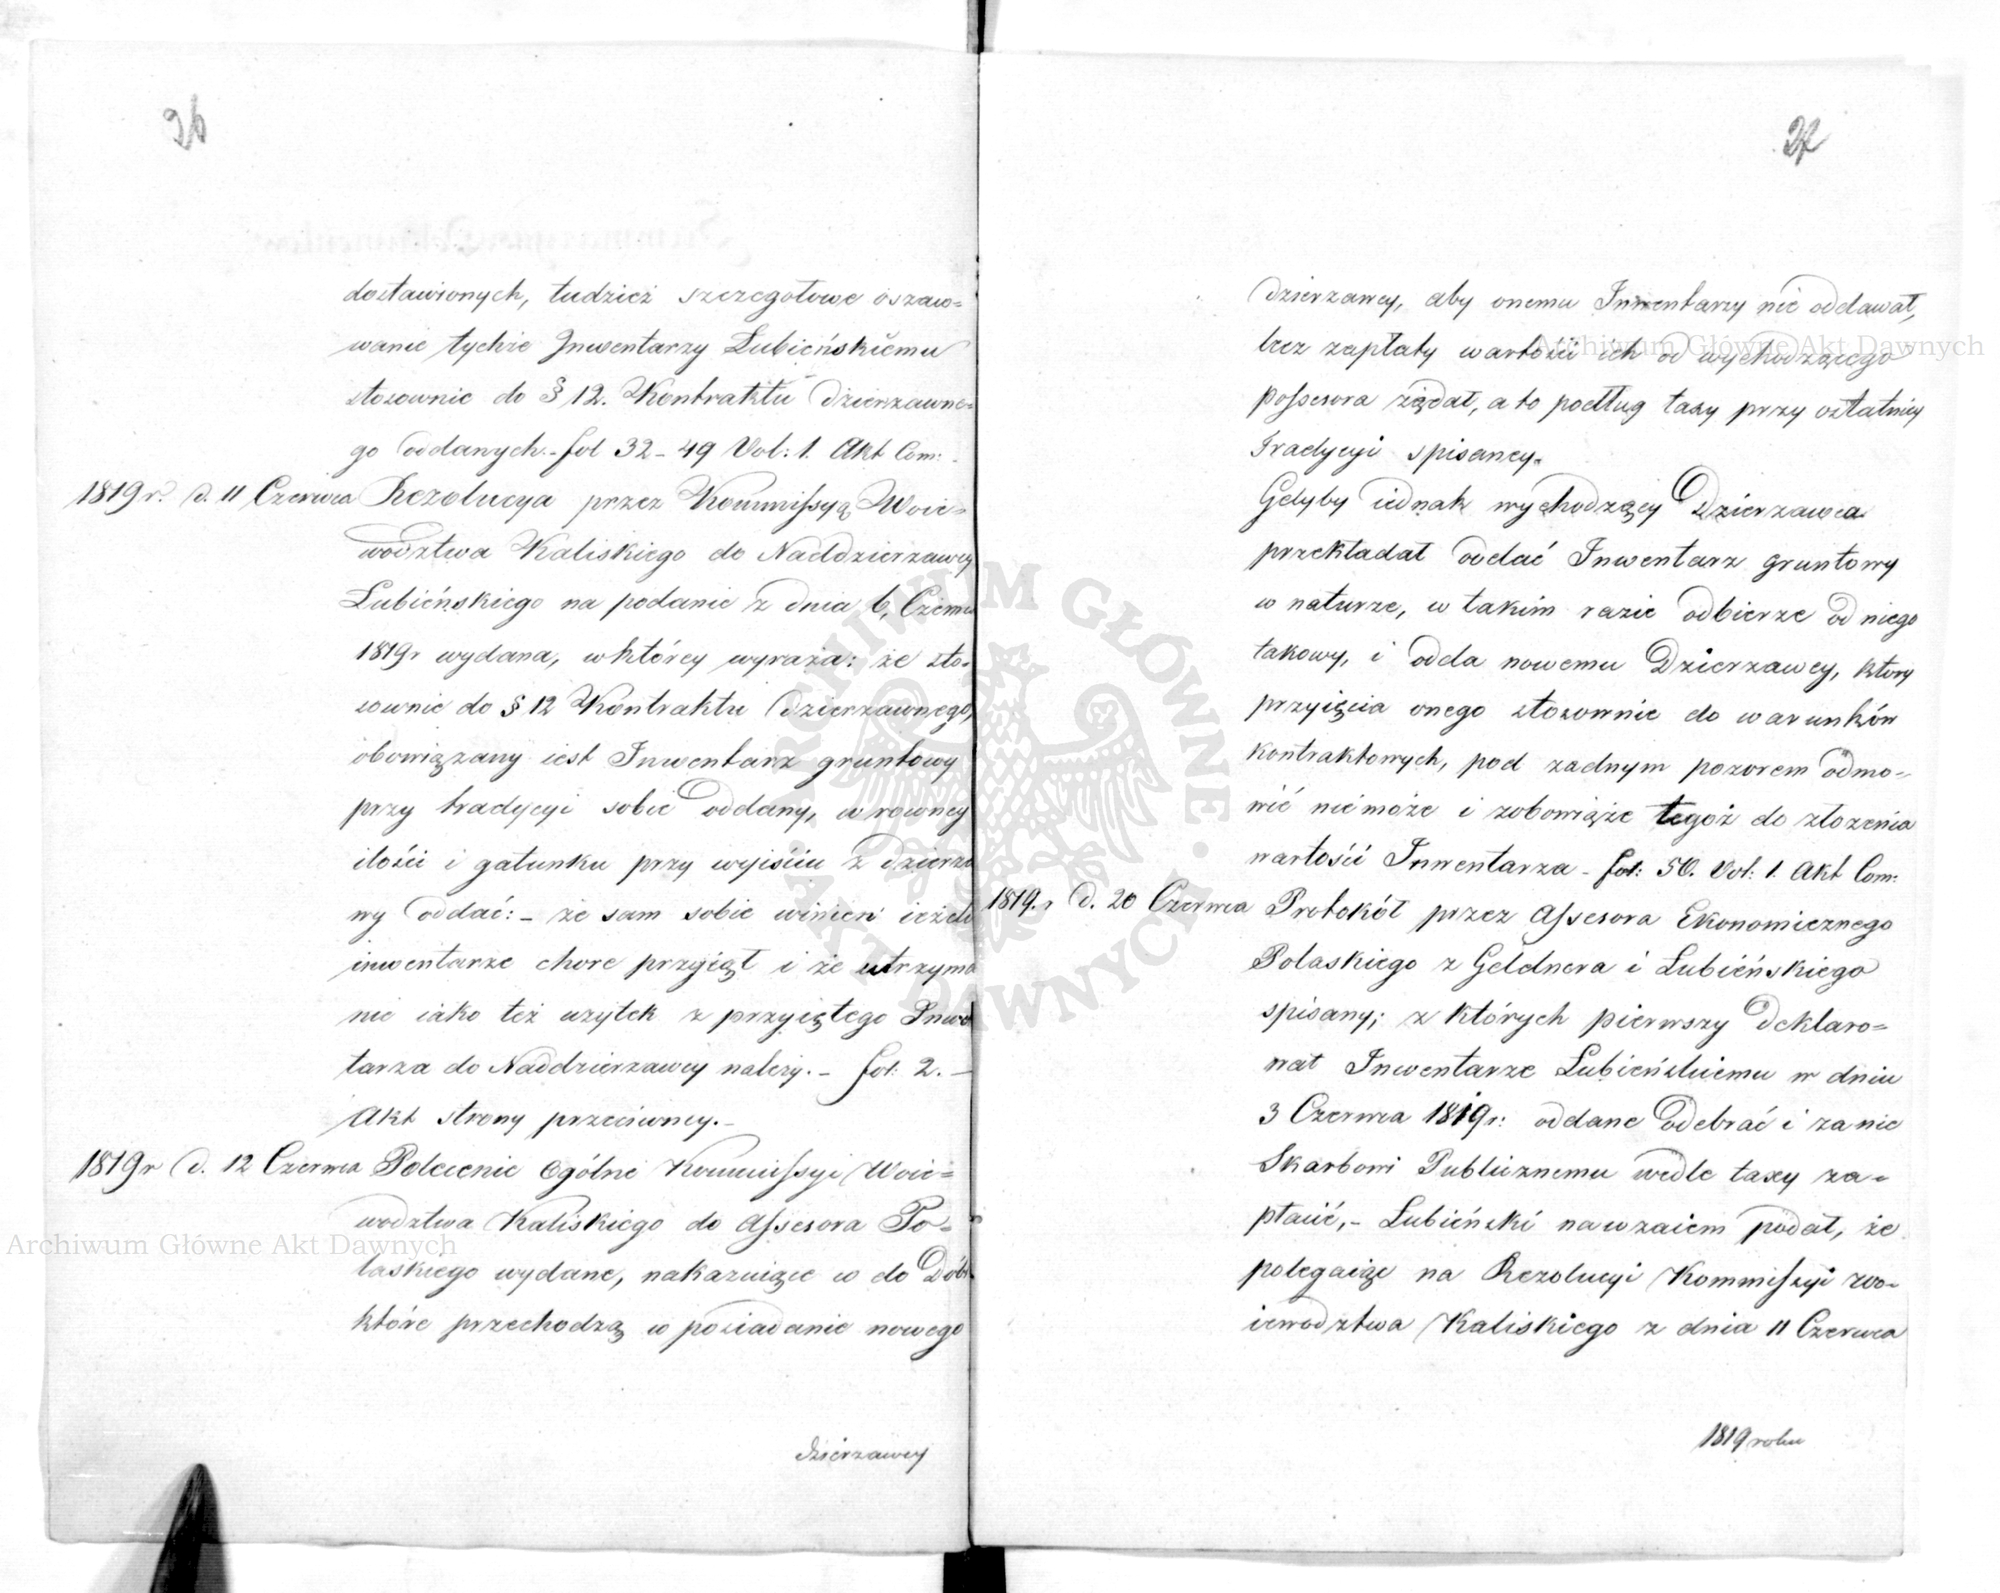 26
dostawionych, tudzież szczegółowe oszaw=
wanie tychże Inwentarzy Lubieńskiemu
stosownie do § 12. Kontraktu dzierzawne=
go oddanych.- fol 32-49 Vol: 1. Akt Com:
1819 r. d. 11 Czerwca Rezolucya przez Kommissyą Woie=
wodztwa Kaliskiego do Naddzierzawcy
Lubieńskiego na podanie z dnia 6, Czerw
1819r wydana, w którey wyraża: że sto=
sownie do § 12 Kontraktu dzierzawnego,
obowiązany iest Inwentarz gruntowy
przy tradycyi sobie oddany, w rowney
ilości i gatunku przy wyiściu z dzierza
wy oddać:- że sam sobie winien ieżeli
inwentarze chore przyiął i że utrzyma
nie iako też uzytek z przyiętego Inwe
tarza do Naddzierzawcy należy.- fol: 2.-
Akt strony przeciwney.-
1819r d. 12 Czerwca Polecenie Ogólne Kommissyi Woie=
wodztwa Kaliskiego do Assesora Po=
laskiego wydane, nakazuiące w do Dób
które przechodzą w posiadanie nowego
dzierzawcy
27
dzierzawcy, aby onemu Inwentarzy nie oddawał,
lecz zapłaty wartości ich od wychodzącego
possesora żądał, a to podług taxy przy ostatniey
Tradycyi spisaney.
Gdyby iednak wychodzący Dzierzawca
przekładał oddać Inwentarz gruntowy
w naturze, w takim razie odbierze od niego
takowy, i odda nowemu Dzierzawcy, który
przyięcia onego stosownie do warunków
kontraktowych, pod zadnym pozorem odmo=
wić nie może i zobowiąże tegoż do złozenia
wartości Inwentarza - fol: 50. Vol: 1. Akt Com:
1819.r d. 20 Czerwca Protokół przez Assesora Ekonomicznego
Polaskiego z Geldnera i Lubieńskiego
spisany; z których pierwszy deklaro=
wał Inwentarze Lubieńskiemu w dniu
3 Czerwca 1819r: oddane odebrać i za nie
Skarbowi Publicznemu wedle taxy za=
płacić,- Lubieński nawzaiem podał, że
polegaiąc na Rezolucyi Kommissyi Wo=
iewodztwa Kaliskiego z dnia 11 Czerwca
1819 roku
Archiwum Główne Akt Dawnych
Archiwum Główne Akt Dawnych
ARCHIWUM GŁÓWNE AKT DAWNYCH